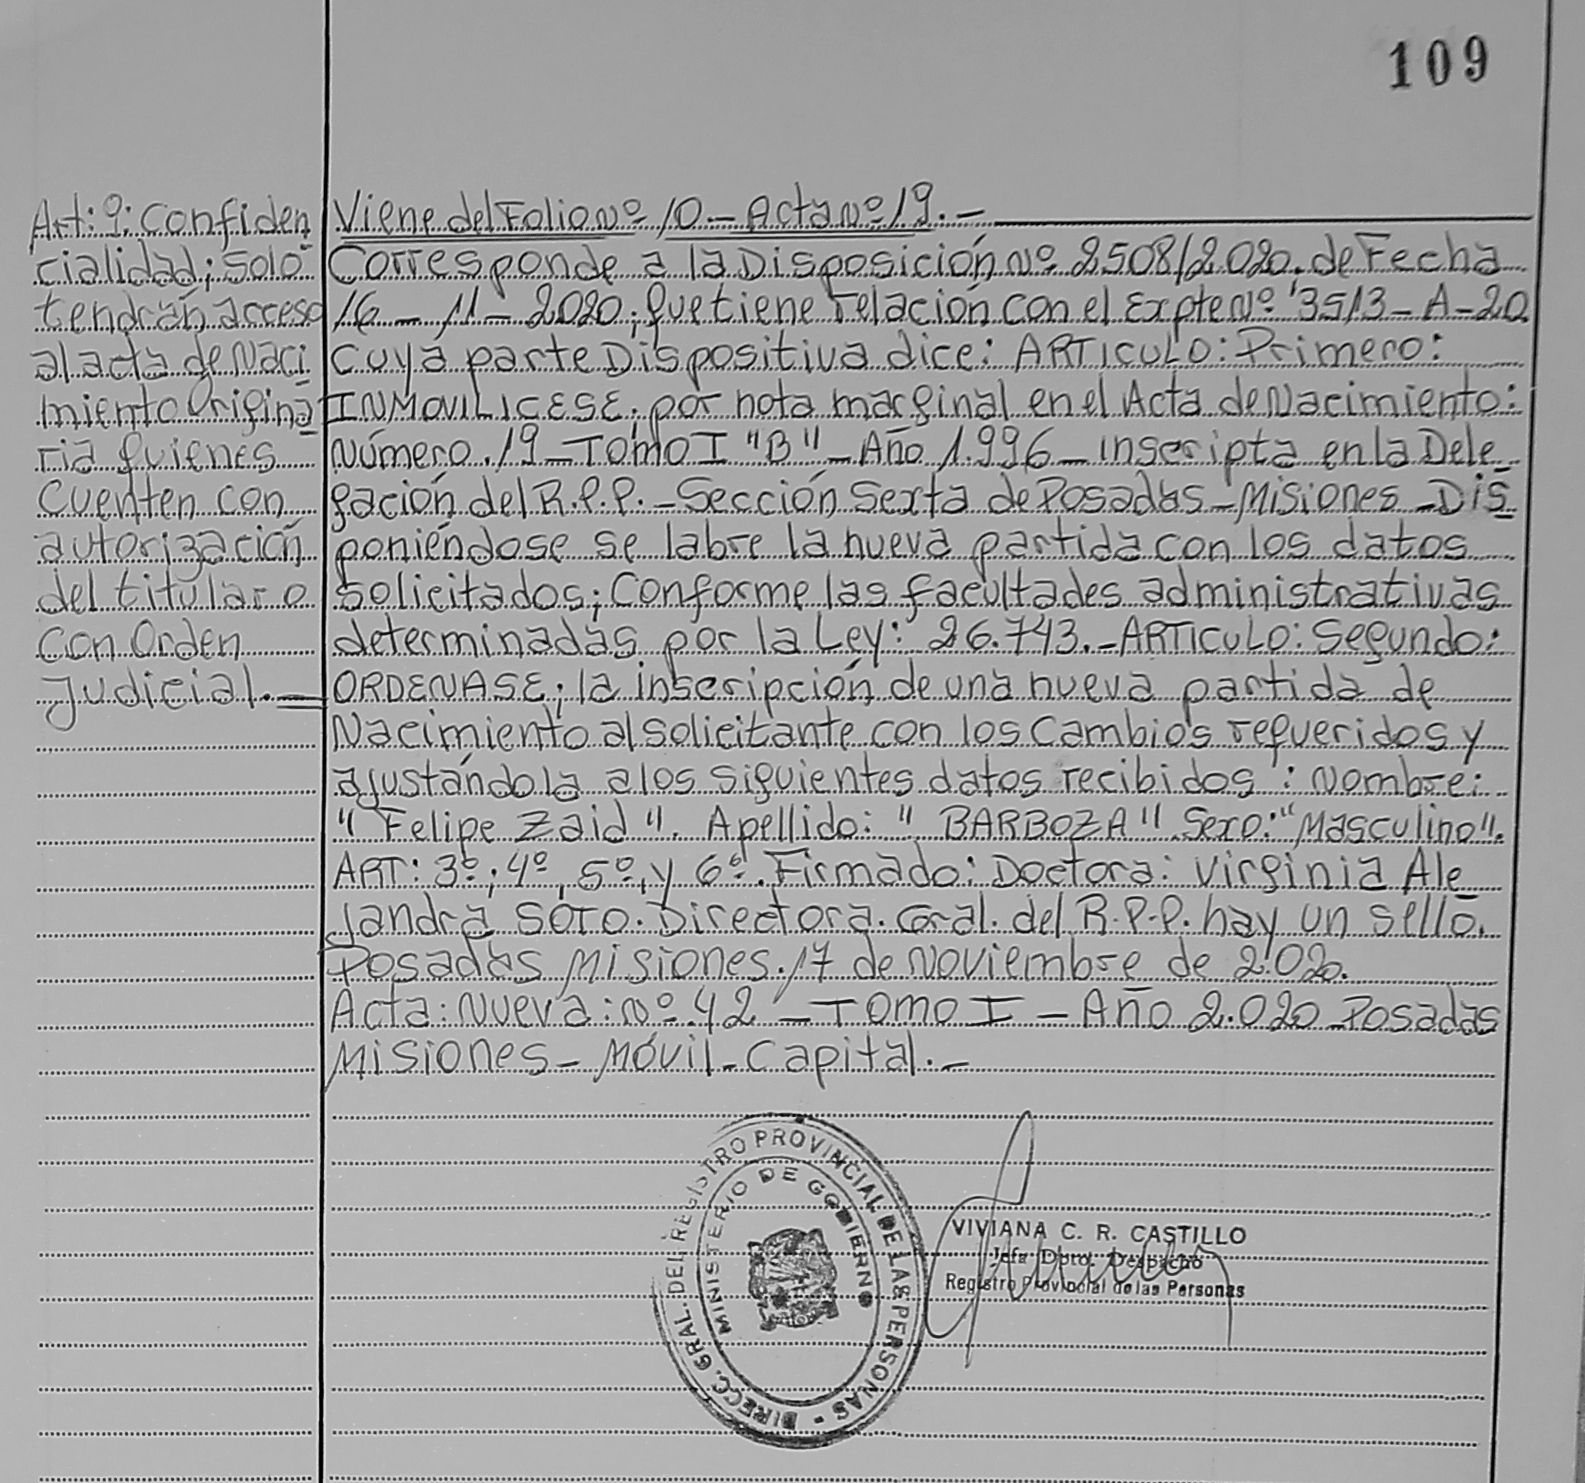 109
Art: 9: Confiden
cialidad; solo
tendrán acceso
al acta de Naci
miento Origina
ria quienes
cuenten con
autorización
del titular o
con Orden
Judicial.—
Viene del Folio Nº 10 — Acta Nº 19.—
Corresponde a la Disposición Nº 2508/2020. de Fecha
16 - 11 - 2020; que tiene relación con el Expte Nº 3513 - A - 20
Cuya parte Dispositiva dice: ARTICULO: Primero:
INMOVILICESE; por nota marginal en el Acta de Nacimiento:
Número. 19 - TOMO I "B" - Año 1.996 - inscripta en la Dele
gación del R.P.P. - Sección Sexta de Posadas - Misiones - Dis
poniéndose se labre la nueva partida con los datos
solicitados; Conforme las facultades administrativas
determinadas por la Ley: 26.743. - ARTICULO: Segundo:
ORDENASE; la inscripción de una nueva partida de
Nacimiento al solicitante con los cambios requeridos y
ajustándola a los siguientes datos recibidos: Nombre:
"Felipe Zaid". Apellido: "BARBOZA" Sexo: "Masculino".
ART: 3º; 4º, 5º, y 6º. Firmado: Doctora: Virginia Ale
jandra SOTO. Directora. Gral. del R.P.P. hay un sello.
Posadas Misiones. 17 de Noviembre de 2.020.
Acta: Nueva: Nº 42 - TOMO I - Año 2.020 - Posadas
Misiones - Móvil - Capital. -
DIRECC. GRAL. DEL REGISTRO PROVINCIAL DE LAS PERSONAS -
MINISTERIO DE GOBIERNO
VIVIANA C. R. CASTILLO
Jefa Dpto. Despacho
Registro Provincial de las Personas